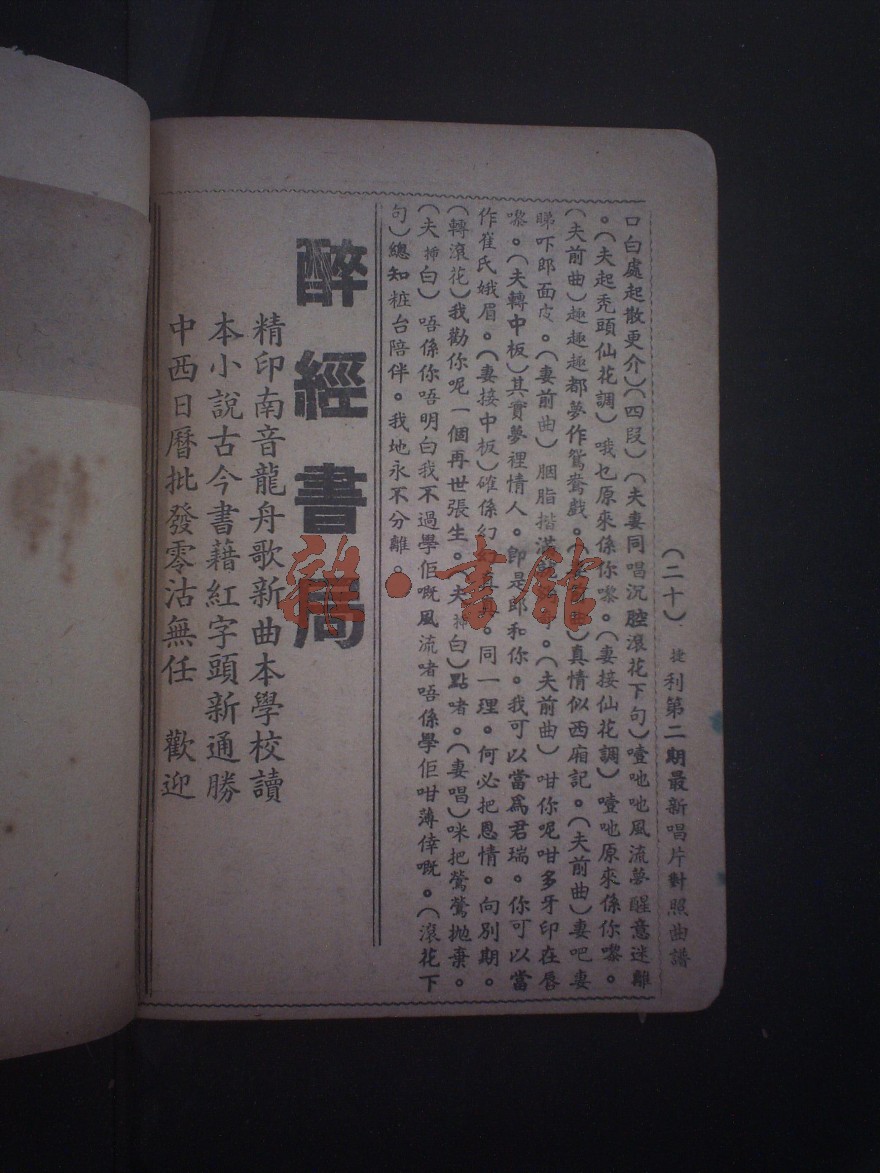 （二十）　捷利第二期最新唱片對照曲譜
口白處起散更介）（四段）（夫妻同唱沉腔滾花下句）噎吔吔風流夢醒意迷離
。（夫起禿頭仙花調）哦乜原來係你嚟。（妻接仙花調）噎吔原來係你嚟。
（夫前曲）趣趣趣都夢作鴛鴦戲。（曲）真情似西廂記。（夫前曲）妻吧妻
睇吓郎面皮。（妻前曲）胭脂揩滿。（夫前曲）咁你呢咁多牙印在唇
嚟。（夫轉中板）其實夢裡情人。卽是郎和你。我可以當爲君瑞。你可以當
作崔氏娥眉。（妻接中板）確係幻真。同一理。何必把恩情。向別期。
（轉滾花）我勸你呢一個再世張生。（夫揷白）點啫。（妻唱）咪把鶯鶯抛棄。
（夫揷白）唔係你唔明白我不過學佢嘅風流啫唔係學佢咁薄倖嘅。（滾花下
句）總知粧台陪伴。我地永不分離。
醉經書局
精印南音龍舟歌新曲本學校讀
本小說古今書藉紅字頭新通勝
中西日曆批發零沽無任　歡迎
雜·書館